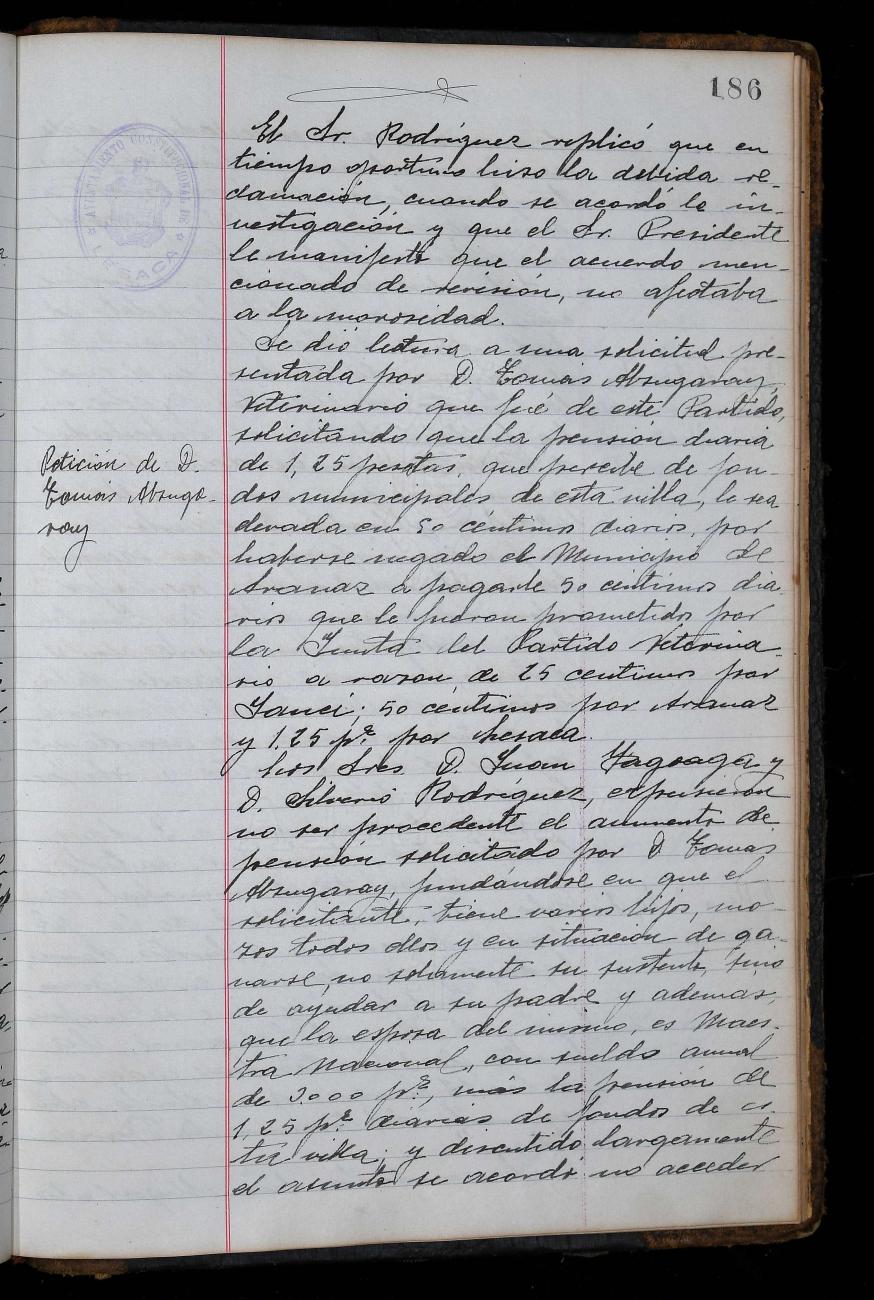 186
AYUNTAMIENTO CONSTITUCIONAL DE
LESACA
El Sr. Rodríguez replicó que en
tiempo oportuno hizo la debida re-
clamación, cuando se acordó la in-
vestigación y que el Sr. Presidente
le manifestó que el acuerdo men-
cionado de revisión, no afectaba
a la morosidad.
Se dió lectura a una solicitud pre-
sentada por D. Tomás Absugaray,
Veterinario que fué de este Partido,
solicitando que la pensión diaria
Petición de D.
Tomás Absuga-
ray
de 1,25 pesetas, que percibe de fon-
dos municipales de esta villa, le sea
elevada en 50 céntimos diarios, por
haberse negado el Municipio de
Aranaz a pagarle 50 centimos dia-
rios que le fueron prometidos por
la Junta del Partido Veterina-
rio a razon de 25 centimos por
Yanci; 50 céntimos por Aranaz
y 1.25 pts. por Lesaca.
Los Sres. D. Juan Yagoaga y
D. Silverio Rodríguez, expusieron
no ser procedente el aumento de
pensión solicitado por D. Tomás
Absugaray, fundándose en que el
solicitante, tiene varios hijos, mo-
zos todos ellos y en situación de ga-
narse, no solamente su sustento, sino
de ayudar a su padre y ademas,
que la esposa del mismo, es Maes-
tra Nacional, con sueldo anual
de 3.000 pts, más la pensión de
1,25 pts. diarias de fondos de es-
ta villa; y discutido largamente
el asunto se acordó no acceder